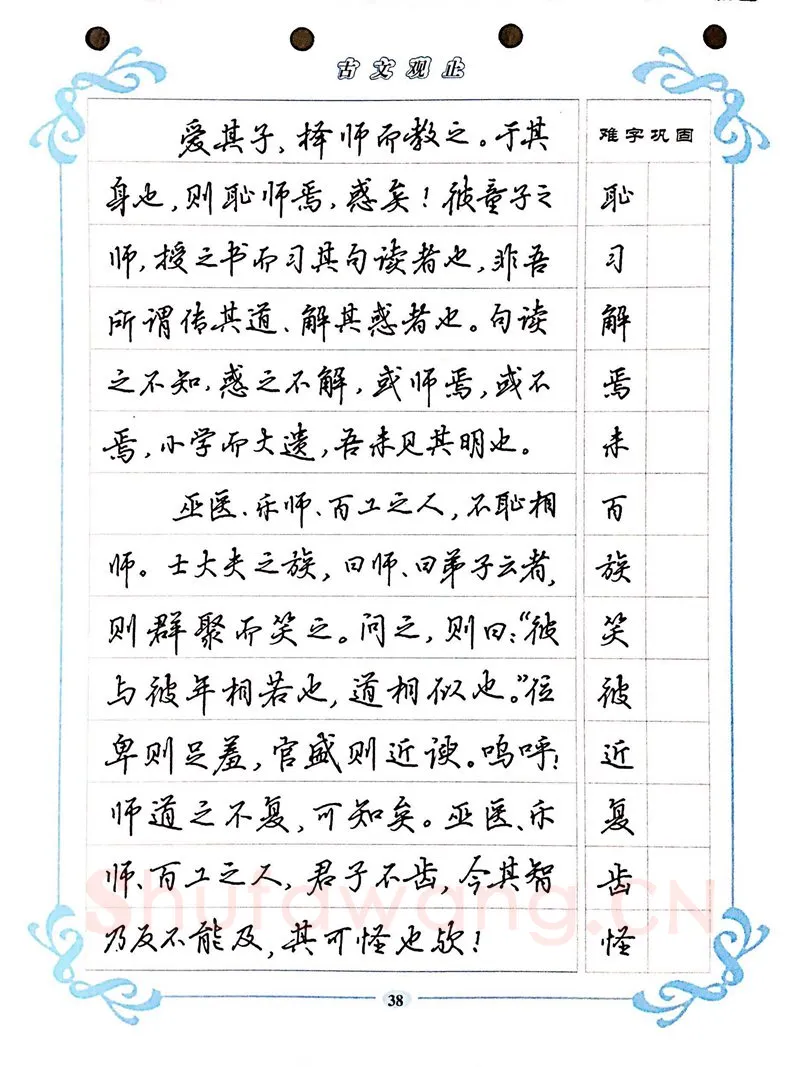 古文观止
爱其子，择师而教之。于其
身也，则耻师焉，惑矣！彼童子之
师，授之书而习其句读者也，非吾
所谓传其道、解其惑者也。句读
之不知，惑之不解，或师焉，或不
焉，小学而大遗，吾未见其明也。
巫医、乐师、百工之人，不耻相
师。士大夫之族，曰师、曰弟子云者，
则群聚而笑之。问之，则曰：“彼
与彼年相若也，道相似也。”位
卑则足羞，官盛则近谀。呜呼！
师道之不复，可知矣。巫医、乐
师、百工之人，君子不齿，今其智
乃反不能及，其可怪也欤！
难字巩固
耻
习
解
焉
未
百
族
笑
彼
近
复
齿
怪
38
Shufawang.CN